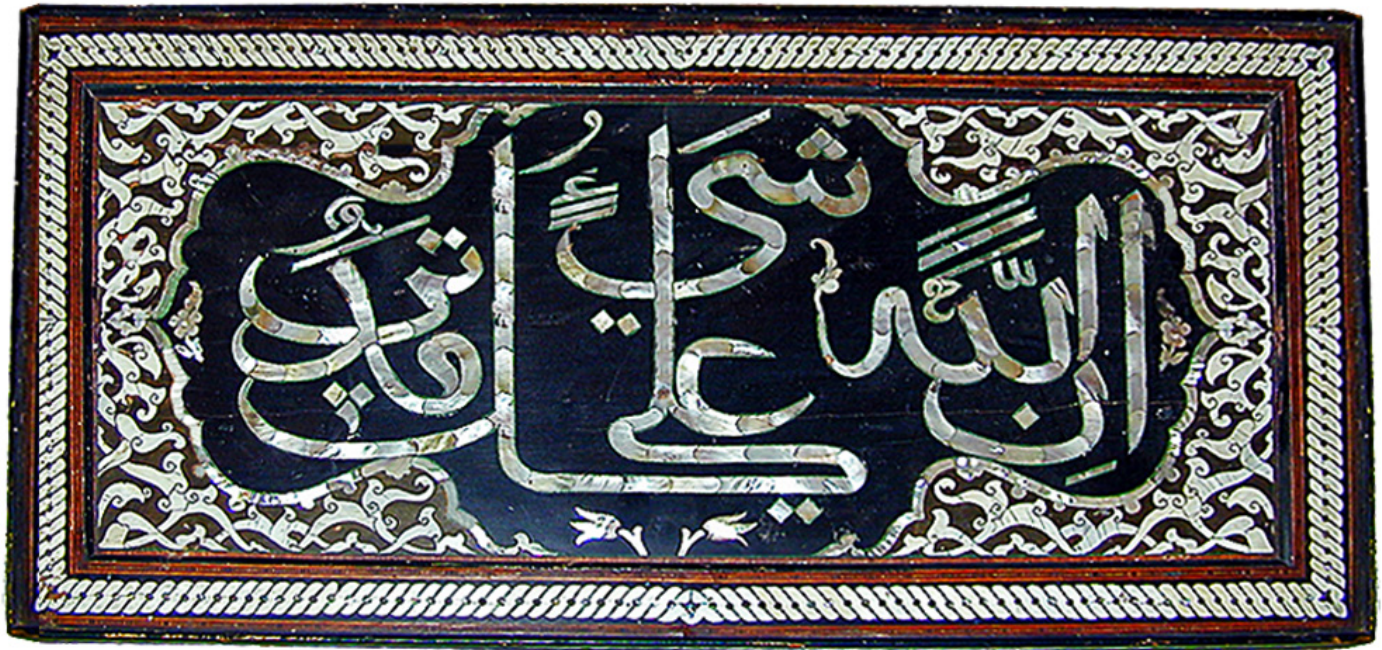 إِنَّ اللّٰهَ عَلٰى كُلِّ شَيْءٍ قَدِيرٌ